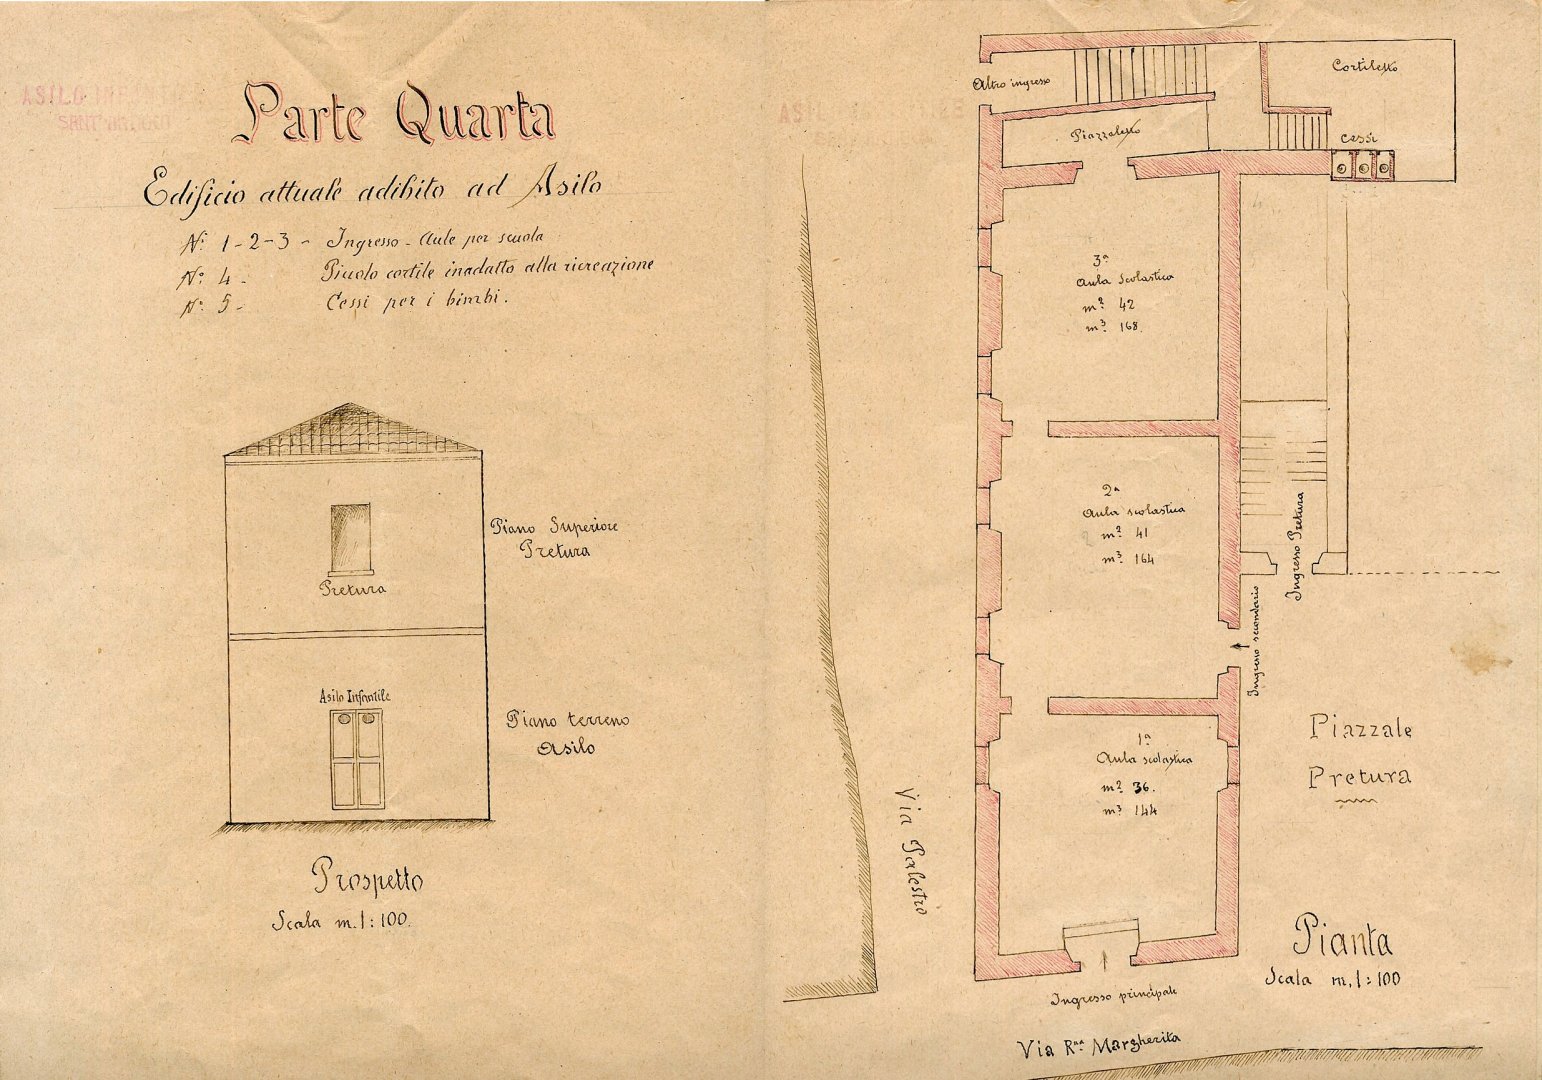 ASILO INFANTILE
Parte Quarta
Edificio attuale adibito ad Asilo
N.º 1 - 2 - 3 - Ingresso - Aule per scuola
N.º 4 - Piccolo cortile inadatto alla ricreazione
N.º 5 - Cessi per i bimbi.
Piano Superiore
Pretura
Pretura
Asilo Infantile
Piano terreno
Asilo
Prospetto
Scala m. 1:100.
Altro ingresso
Cortiletto
Piazzaletto
Cessi
3ª
Aula Scolastica
m² 42
m³ 168.
2ª
Aula scolastica
m² 41
m³ 164
Ingresso Pretura
Ingresso secondario
1ª
Aula scolastica
m² 36.
m³ 144
Piazzale
Pretura
Via Palestro
Pianta
Scala m. 1:100
Ingresso principale
Via R.na Margherita